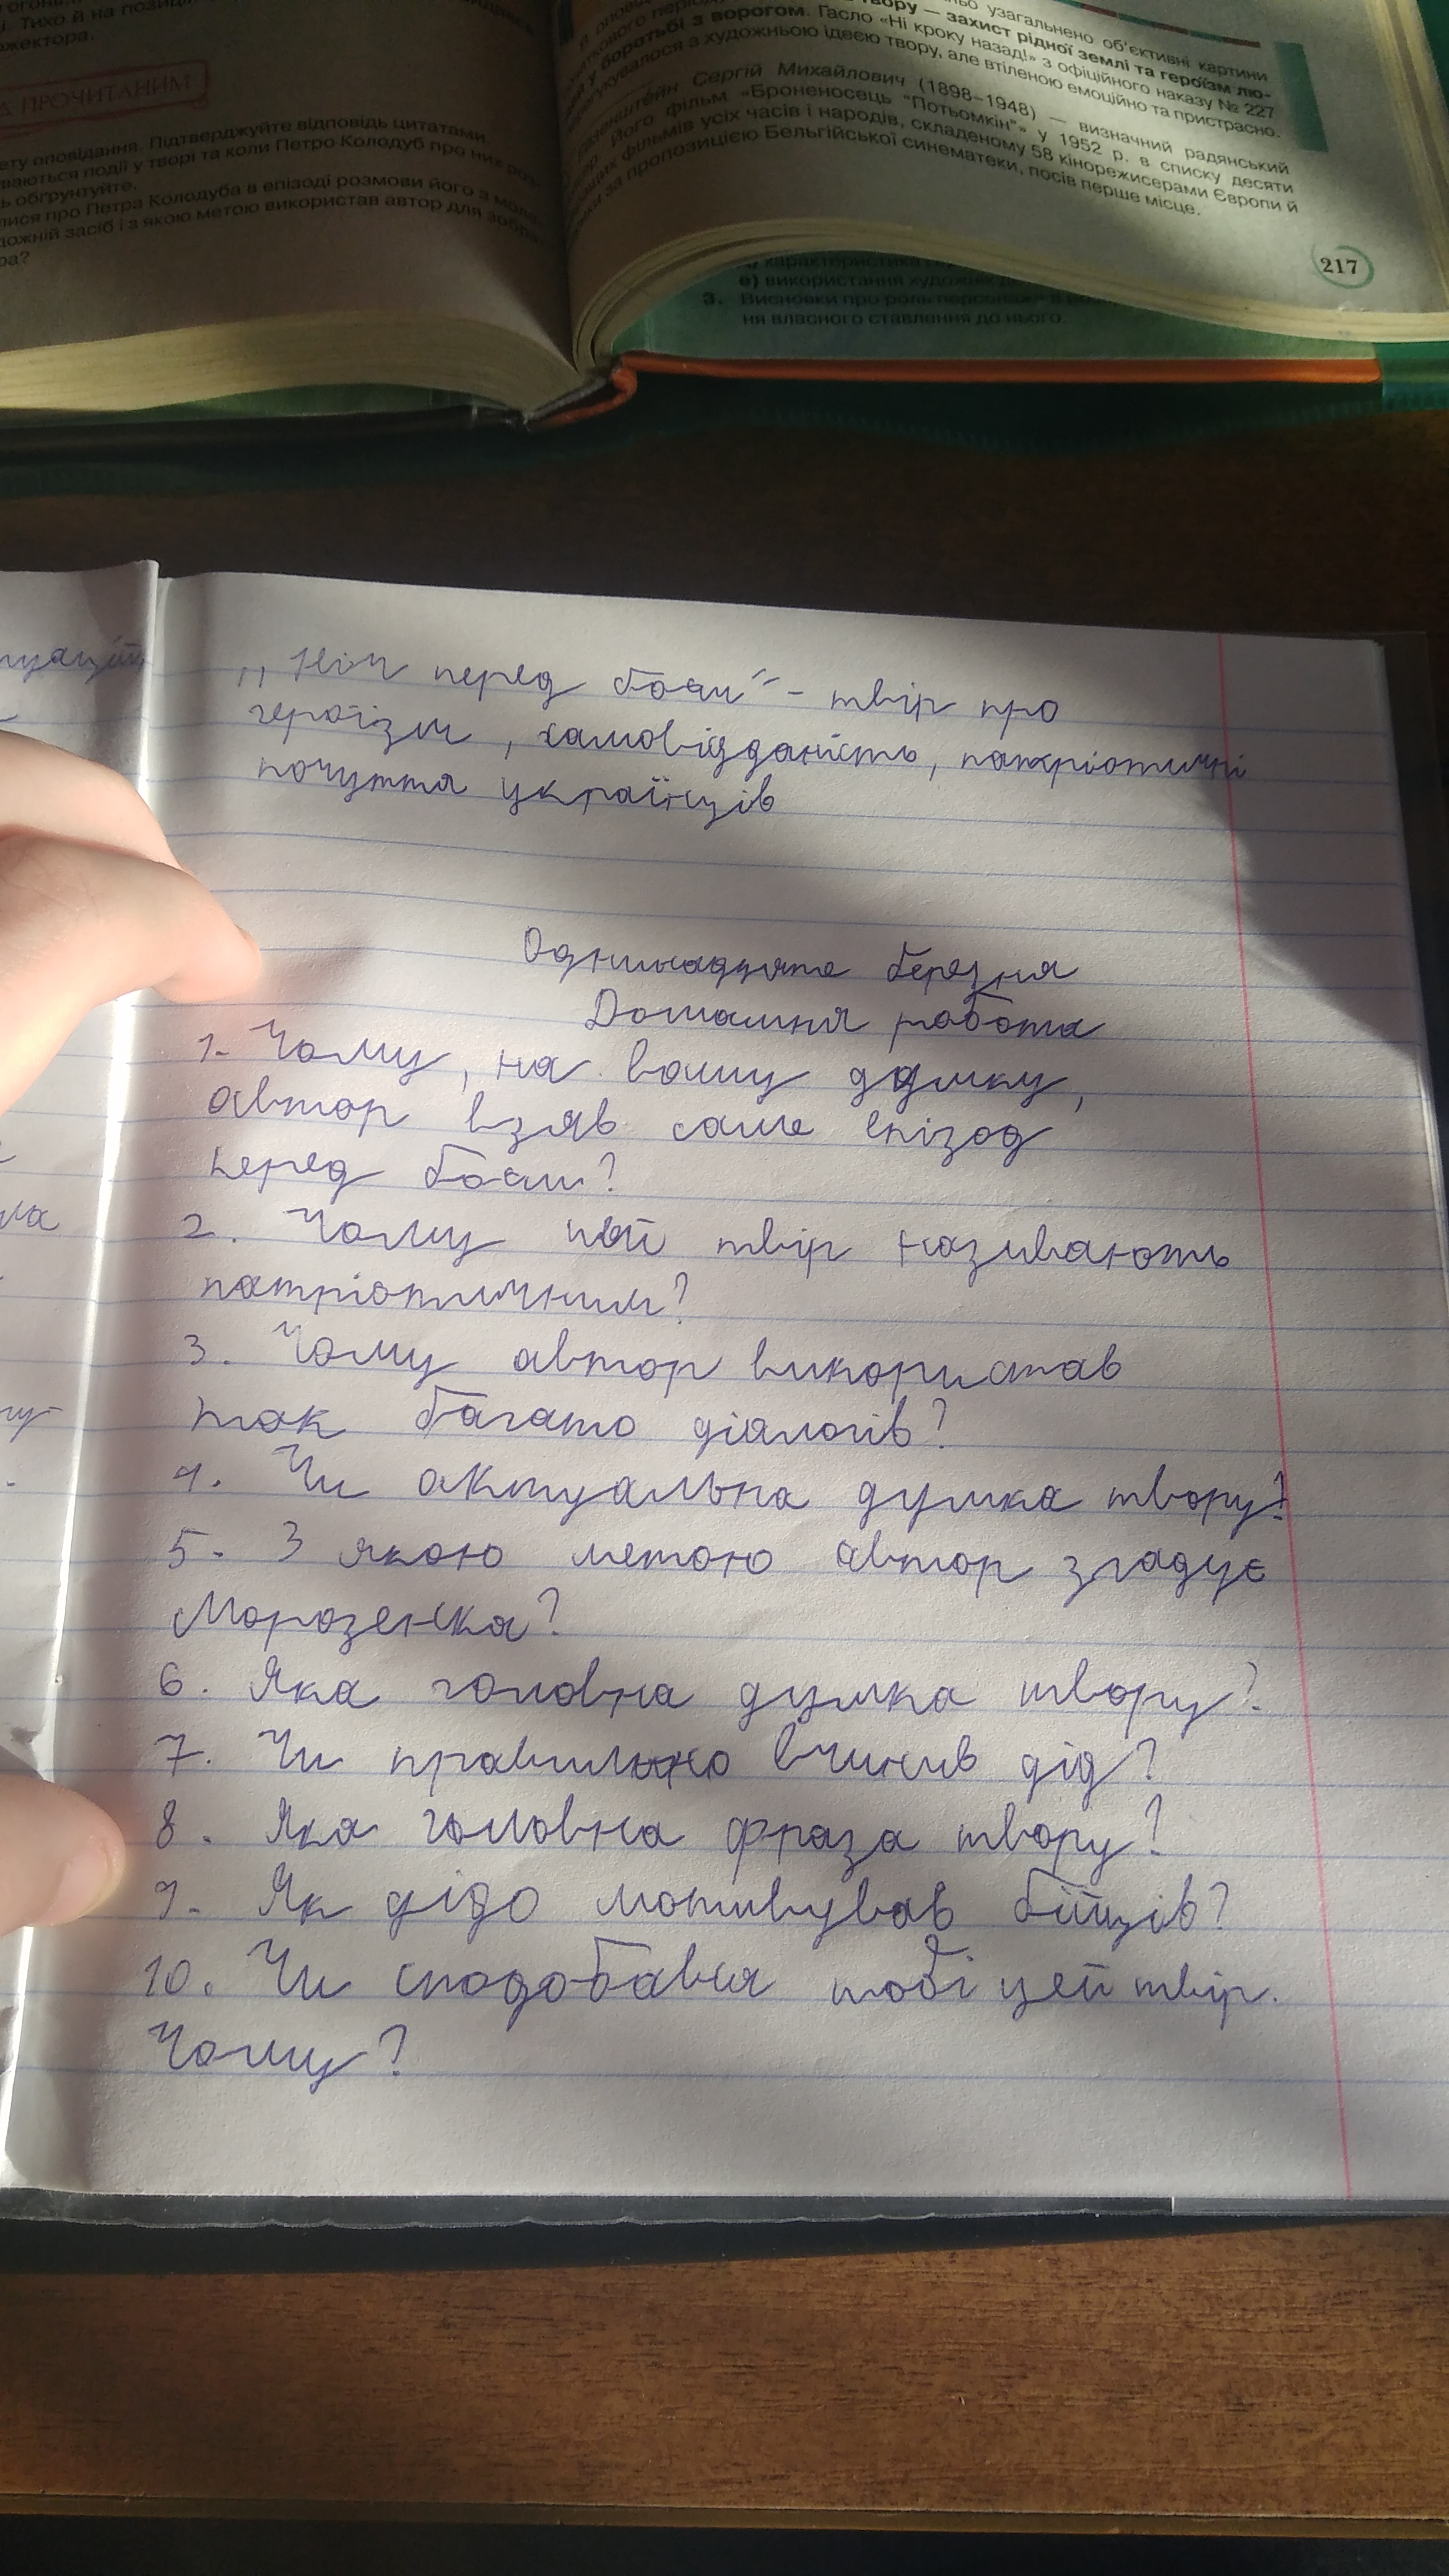 І. Тихо й на позиці
жектора.
ПРОЧИТАНИМ
ету оповідання. Підтверджуйте відповідь цитатами
ваються події у творі та коли Петро Колодуб про них роз-
ь обґрунтуйте.
лися про Петра Колодуба в епізоді розмови його з моло-
дожній засіб і з якою метою використав автор для зобра-
ра?
узагальнено об'єктивні картини
твору — захист рідної землі та героїзм лю-
у боротьбі з ворогом. Гасло «Ні кроку назад!» з офіційного наказу № 227
перегукувалося з художньою ідеєю твору, але втіленою емоційно та пристрасно.
Ейзенштейн Сергій Михайлович (1898–1948) — визначний радянський
Його фільм «Броненосець "Потьомкін"» у 1952 р. в списку десяти
фільмів усіх часів і народів, складеному 58 кінорежисерами Європи й
за пропозицією Бельгійської синематеки, посів перше місце.
217
характеристика
в) використання художн
3. Висновки про роль персонаж
ня власного ставлення до нього.
„Ніч перед боєм" - твір про
героїзм, самовідданість, патріотичні
почуття українців
Одинадцяте березня
Домашня робота
1. Чому, на вашу думку,
автор взяв саме епізод
перед боєм?
2. Чому цей твір називають
патріотичним?
3. Чому автор використав
так багато діялогів?
4. Чи актуальна думка твору?
5. З якою метою автор згадує
Морозенка?
6. Яка головна думка твору?
7. Чи правильно вчинив дід?
8. Яка головна фраза твору?
9. Як дідо мотивував бійців?
10. Чи сподобався тобі цей твір.
Чому?